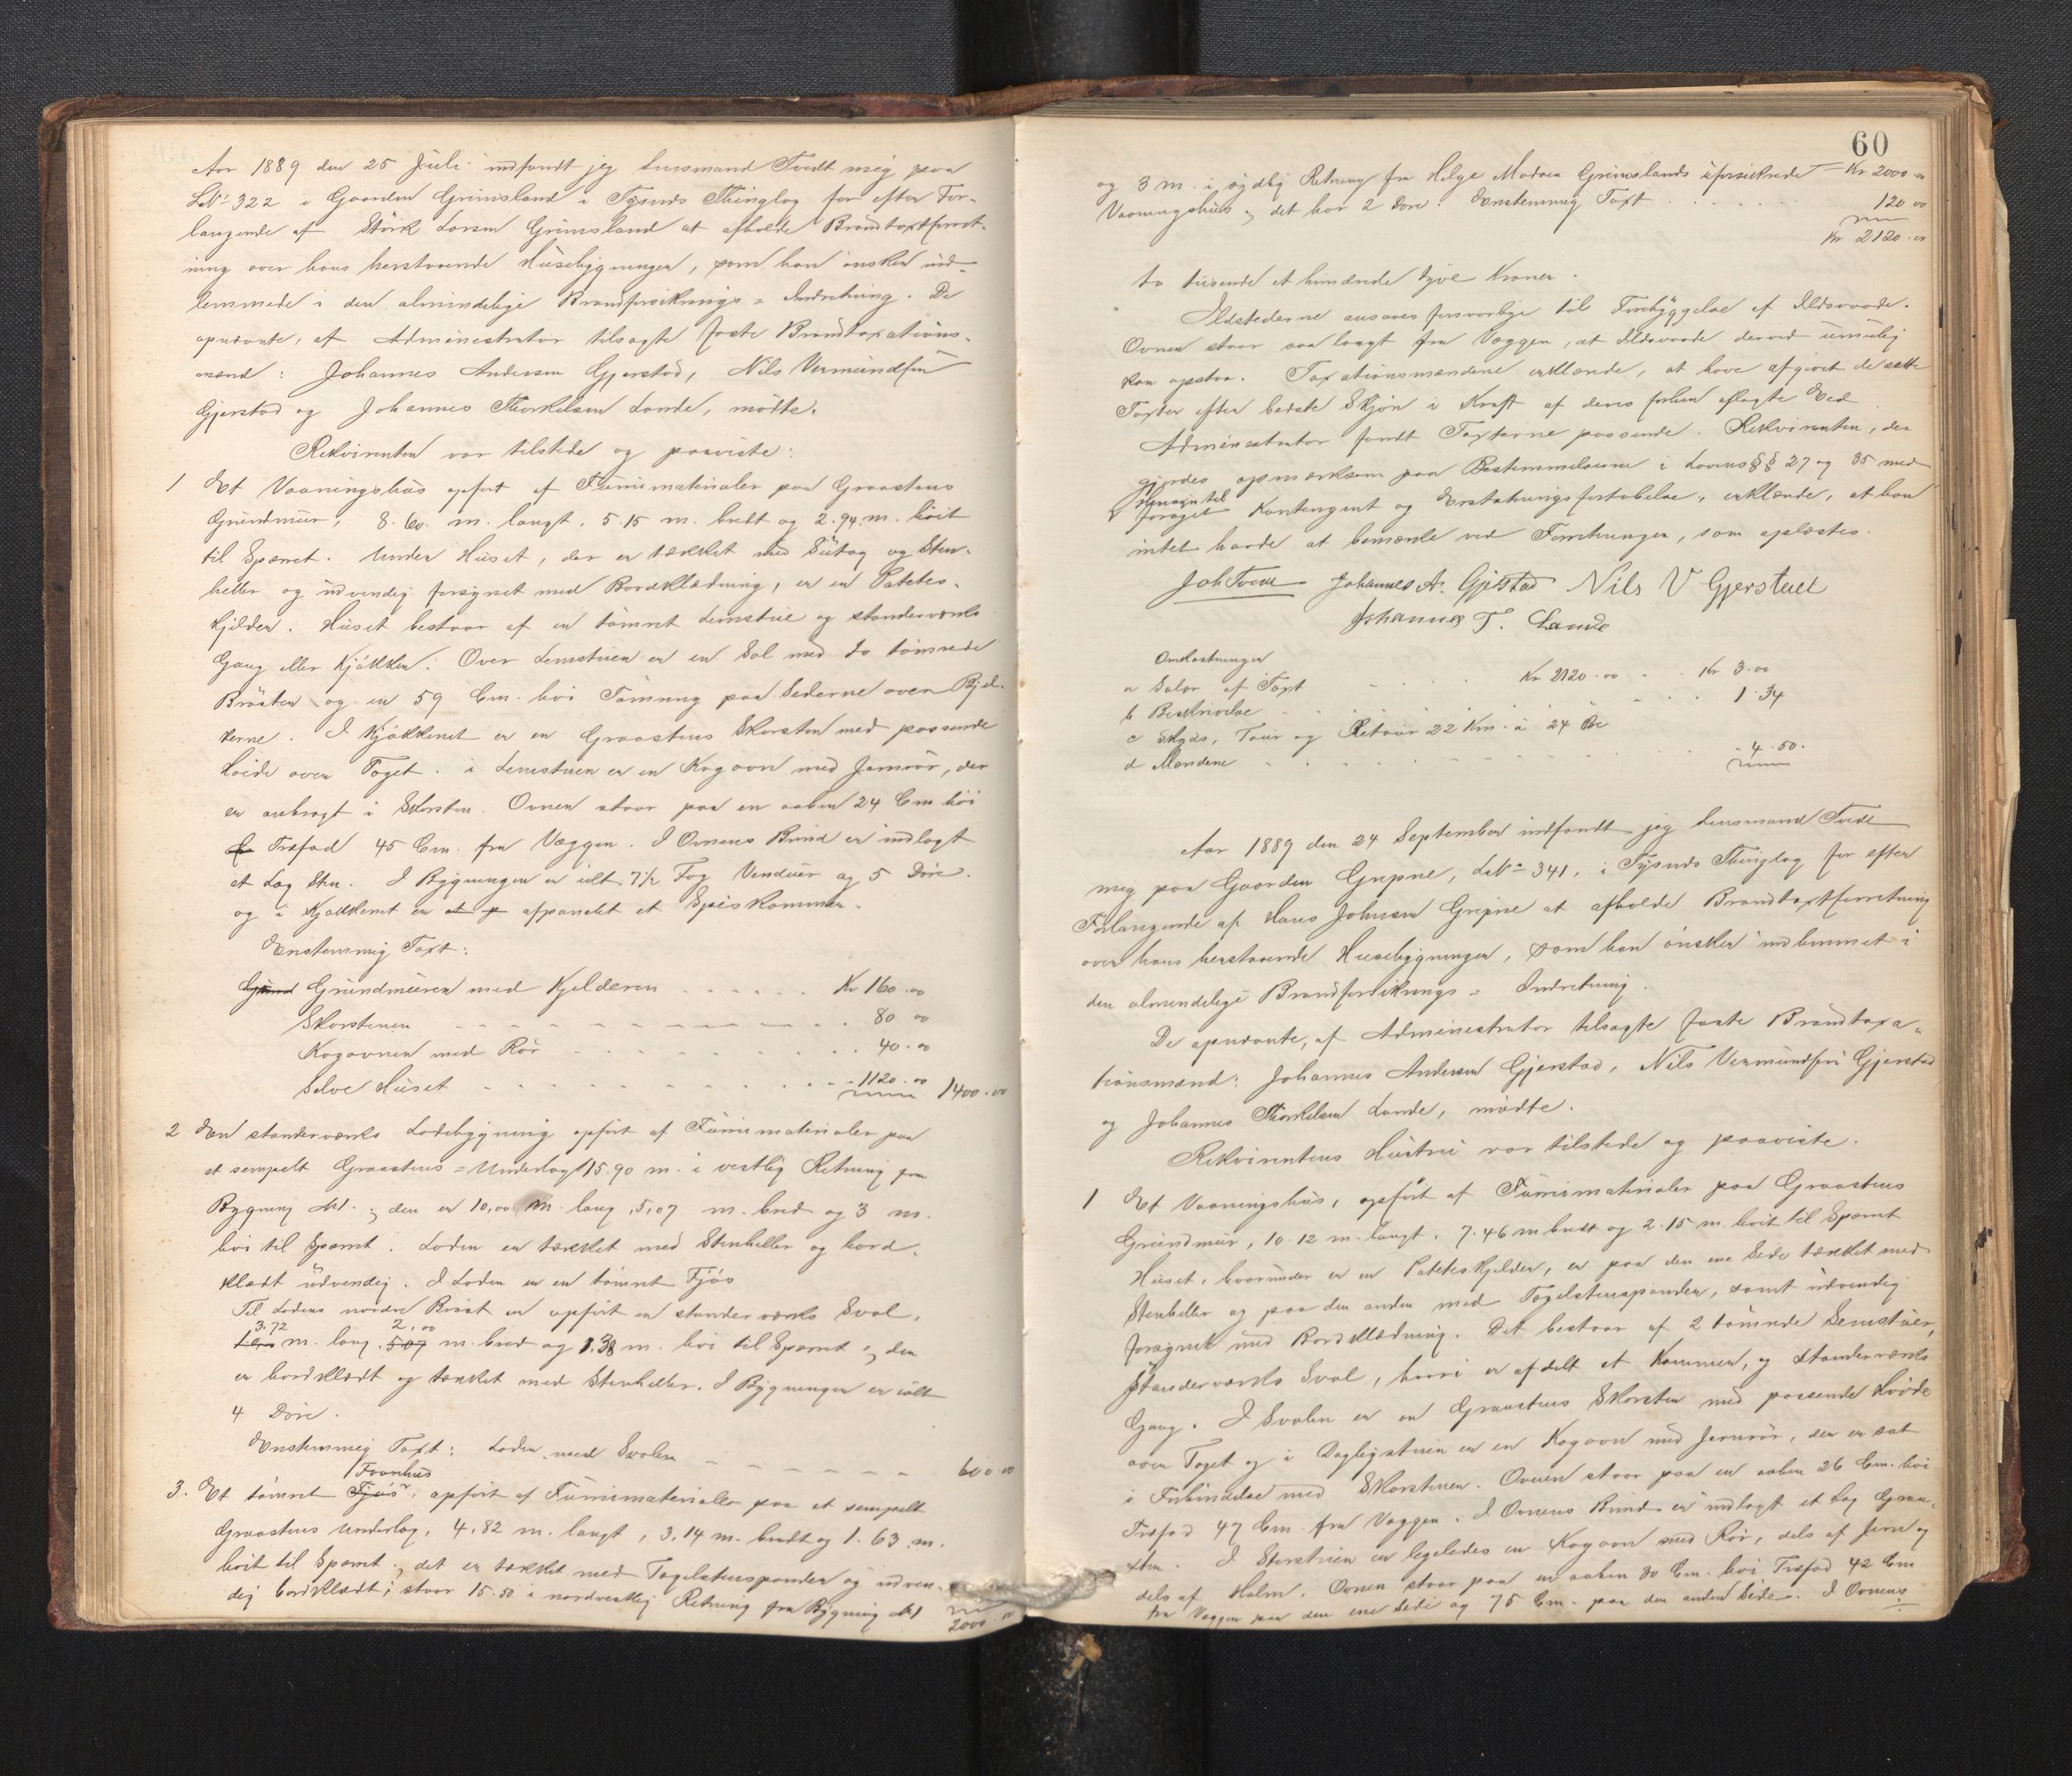 Aar 1889 den 25 Juli indfandt jeg Lensmand Tvedt mig paa
LNo 322 i Gaarden Grimsland i Tysnæs Thinglag for efter For-
langende af Størk Larsen Grimsland at afholde Brandtaxtforret-
ning over hans herstaaende Husebygninger, som han ønsker ind-
lemmede i den almindelige Brandforsikrings-Indretning. De
opnævnte, af Administrator tilsagte faste Brandtaxations-
mænd: Johannes Andersen Gjerstad, Nils Vermundsøn
Gjerstad og Johannes Thorkelsen Lande, mødte.
Rekvirenten var tilstede og paaviste:
1 Et Vaaningshus opført af Furumaterialer paa Graastens
Grundmur, 8.60 m. langt, 5.15 m. bredt og 2.94 m. høit
til Spærret. Under Huset, der er tækket med Sutag og Sten-
heller og udvendig forsynet med Bordklædning, er en Potetes-
kjelder. Huset bestaar af en tømret Lemstue og standerværks
Gang eller Kjøkken. Over Lemstuen er en Sal med to tømrede
Brøster og en 59 Cm. høi Tømring paa Siderne over Bjel-
kerne. I Kjøkkenet er en Graastens Skorsten med passende
Høide over Taget. i Lemstuen er en Kogovn med Jernrør, der
er anbragt i Skorsten. Ovnen staar paa en aaben 24 Cm høi
Træfod 45 Cm. fra Væggen. I Ovnens Bund er indlagt
et Lag Sten. I Bygningen er ialt 7 1/2 Fag Venduer og 5 Døre.
og i Kjøkkenet er afpanelet et Spiskammer.
Enstemmig Taxt:
Grund Grundmuren med Kjelderen Kr 160.00
Skorstenen 80 00
Kogovnen med Rør 40.00
Selve Huset 1120.00 1400.00
2 En standerværks Ladebygning opført af Furumaterialer paa
et sempelt Graastens-Underlag 15.90 m. i vestlig Retning fra
Bygning No 1.; den er 10,00 m. lang, 5,07 m. bred og 3 m.
høi til Spærret. Laden er tækket med Stenheller og bord-
klædt udvendig. I Laden er en tømret Fjøs
Til Ladens nordre Brøst er opført en standerværks Sval,
3.72 2.00
m. lang, 5.07 m. bred og 1.38 m. høi til Spærret; den
er bordklædt og tækket med Stenheller. I Bygningen er ialt
4 Døre.
Enstemmig Taxt: Laden med Svalen 600.00
Faarehus
3. Et tømret Fjøs, opført af Furumaterialer paa et sempelt
Graastens Underlag, 4,82 m. langt, 3,14 m. bredt og 1.63 m.
høit til Spærret; det er tækket med Tagelstenspander og udven-
dig bordklædt; staar 15.50 i nordvestlig Retning fra Bygning No 1
2000
60
og 3 m. i sydlig Retning fra Helge Madsen Grimslands uforsikrede Kr 2000.00
Vaaningshus; det har 2 Døre. Enstemmig Taxt 120 00
Kr 2120.00
to tusende et hundrede tyve Kroner.
Ildstederne ansaaes forsvarlige til Forebyggelse af Ildsvaade.
Ovnen staar saa langt fra Væggen, at Ildsvaade derved umulig
kan opstaa. Taxationsmændene erklærede, at have afgivet de satte
Taxter efter bedste Skjøn i Kraft af deres forhen aflagte Ed.
Administrator fandt Taxterne passende. Rekvirenten, der
gjordes opmærksom paa Bestemmelserne i Lovens §§ 27 og 35 med
Hensyn til
forøget Kontingent og Erstatningsfortabelse, erklærede, at han
intet havde at bemærke ved Forretningen, som oplæstes.
Joh Tvedt Johannes A. Gjerstad Nils V Gjerstad
Johannes T. Lande
Omkostninger
a Salær af Taxt Kr 2120.00 Kr 3.00
b Beskrivelse 1.34
c Skyds, Tour og Retour 22 Km. á 24 Øre
d Mændene 4.50.
Aar 1889 den 24 September indfandt jeg Lensmand Tvedt
mig paa Gaarden Gripne, LNo 341, i Tysnæs Thinglag for efter
Forlangende af Hans Johnsen Gripne at afholde Brandtaxtforretning
over hans herstaaende Husebygninger, som han ønsker indlemmet i
den almindelige Brandforsikrings-Indretning.
De opnævnte, af Administrator tilsagte faste Brandtaxa-
tionsmænd: Johannes Andersen Gjerstad, Nils Vermundsøn Gjerstad
og Johannes Thorkelsen Lande, mødte.
Rekvirentens Hustru var tilstede og paaviste.
1 Et Vaaningshus, opført af Furumaterialer paa Graastens
Grundmur, 10.12 m. langt, 7.46 m bredt og 2.15 m. høit til Spærret
Huset, hvorunder er en Poteteskjelder, er paa den ene Side tækket med
Stenheller og paa den anden med Tagelstenspander, samt udvendig
forsynet med Bordklædning. Det bestaar af 2 tømrede Lemstuer,
Standerværks Sval, hvori er afdelt et Kammer, og Standerværks
Gang. I Svalen er en Graastens Skorsten med passende Høide
over Taget og i Dagligstuen er en Kogovn med Jernrør, der er sat
i Forbindelse med Skorstenen. Ovnen staar paa en aaben 26 Cm. høi
Træfod 47 Cm fra Væggen. I Ovnens Bund er indlagt et Lag Graa-
sten. I Storstuen er ligeledes en Kogovn med Rør, dels af Jern og
dels af Halm. Ovnen staar paa en aaben 30 Cm. høi Træfod 42 Cm
fra Væggen paa den ene Side og 75 Cm. paa den anden Side. I Ovnens